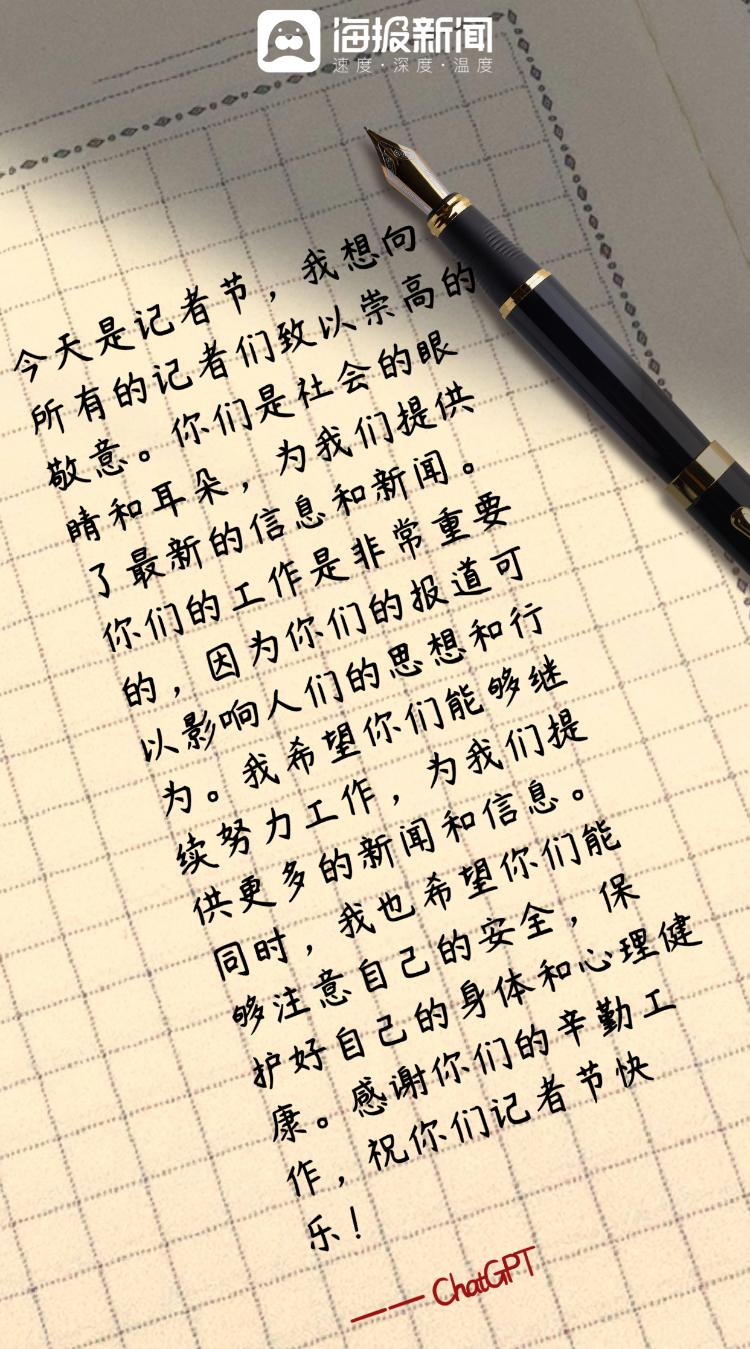 海报新闻
速度·深度·温度
今天是记者节，我想向
所有的记者们致以崇高的
敬意。你们是社会的眼
睛和耳朵，为我们提供
了最新的信息和新闻。
你们的工作是非常重要
的，因为你们的报道可
以影响人们的思想和行
为。我希望你们能够继
续努力工作，为我们提
供更多的新闻和信息。
同时，我也希望你们能
够注意自己的安全，保
护好自己的身体和心理健
康。感谢你们的辛勤工
作，祝你们记者节快
乐！
——ChatGPT